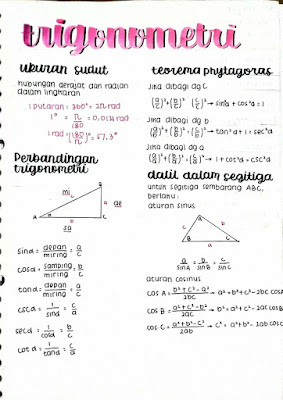 trigonometri
ukuran sudut
hubungan derajat dan radian
dalam lingkaran
1 putaran = 360° = 2π rad
1° = π/180 = 0,0174 rad
1 rad = (180/π)° = 57,3°
Perbandingan
trigonometri
B
mi
c
a
de
A
b
C
sa
sin α = depan/miring = a/c
cos α = samping/miring = b/c
tan α = depan/miring = a/c
csc α = 1/sin α = c/a
sec α = 1/cos α = b/c
cot α = 1/tan α = c/a
teorema phytagoras
Jika dibagi dg c
(a/c)² + (b/c)² (c/c)² → sin² α + cos² α = 1
Jika dibagi dg b
(a/b)² + (b/b)² = (c/b)² → tan² α + 1 = sec² α
Jika dibagi dg a
(a/a)² + (b/a)² = (c/a)² → 1 + cot² α = csc² α
dalil dalam segitiga
untuk segitiga sembarang ABC,
berlaku:
aturan sinus
A
c
b
B
a
C
a/sin A = b/sin B = c/sin C
aturan cosinus
cos A = b² + c² - a²/2bc → a² = b² + c² - 2bc cos A
cos B = a² + c² - b²/2ac → b² = a² + c² - 2ac cos B
cos C = a² + b² - c²/2ab → c² = a² + b² - 2ab cos C